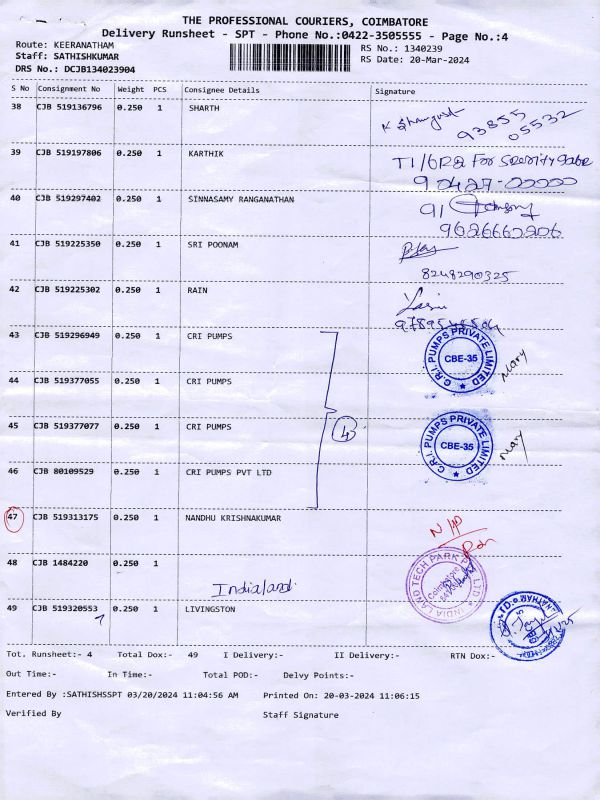 THE PROFESSIONAL COURIERS, COIMBATORE
Delivery Runsheet - SPT - Phone No.:0422-3505555 - Page No.:4
Route: KEERANATHAM RS No.: 1340239
Staff: SATHISHKUMAR RS Date: 20-Mar-2024
DRS No.: DCJB134023904
S No Consignment No Weight PCS Consignee Details Signature
38 CJB 519136796 0.250 1 SHARTH
93855
05532
39 CJB 519197806 0.250 1 KARTHIK
For Security Gate
90427-00000
40 CJB 519297402 0.250 1 SINNASAMY RANGANATHAN
9626662206
41 CJB 519225350 0.250 1 SRI POONAM
8248290325
42 CJB 519225302 0.250 1 RAIN
43 CJB 519296949 0.250 1 CRI PUMPS
C.R.I. PUMPS PRIVATE LIMITED
CBE-35
Mary
44 CJB 519377055 0.250 1 CRI PUMPS
45 CJB 519377077 0.250 1 CRI PUMPS
4
C.R.I. PUMPS PRIVATE LIMITED
CBE-35
Mary
46 CJB 80109529 0.250 1 CRI PUMPS PVT LTD
47 CJB 519313175 0.250 1 NANDHU KRISHNAKUMAR
48 CJB 1484220 0.250 1
Indialand
INDIA LAND TECH PARK PVT LTD
Coimbatore
49 CJB 519320553 0.250 1 LIVINGSTON
Tot. Runsheet:- 4 Total Dox:- 49 I Delivery:- II Delivery:- RTN Dox:-
Out Time:- In Time:- Total POD:- Delvy Points:-
Entered By :SATHISHSSPT 03/20/2024 11:04:56 AM Printed On: 20-03-2024 11:06:15
Verified By Staff Signature